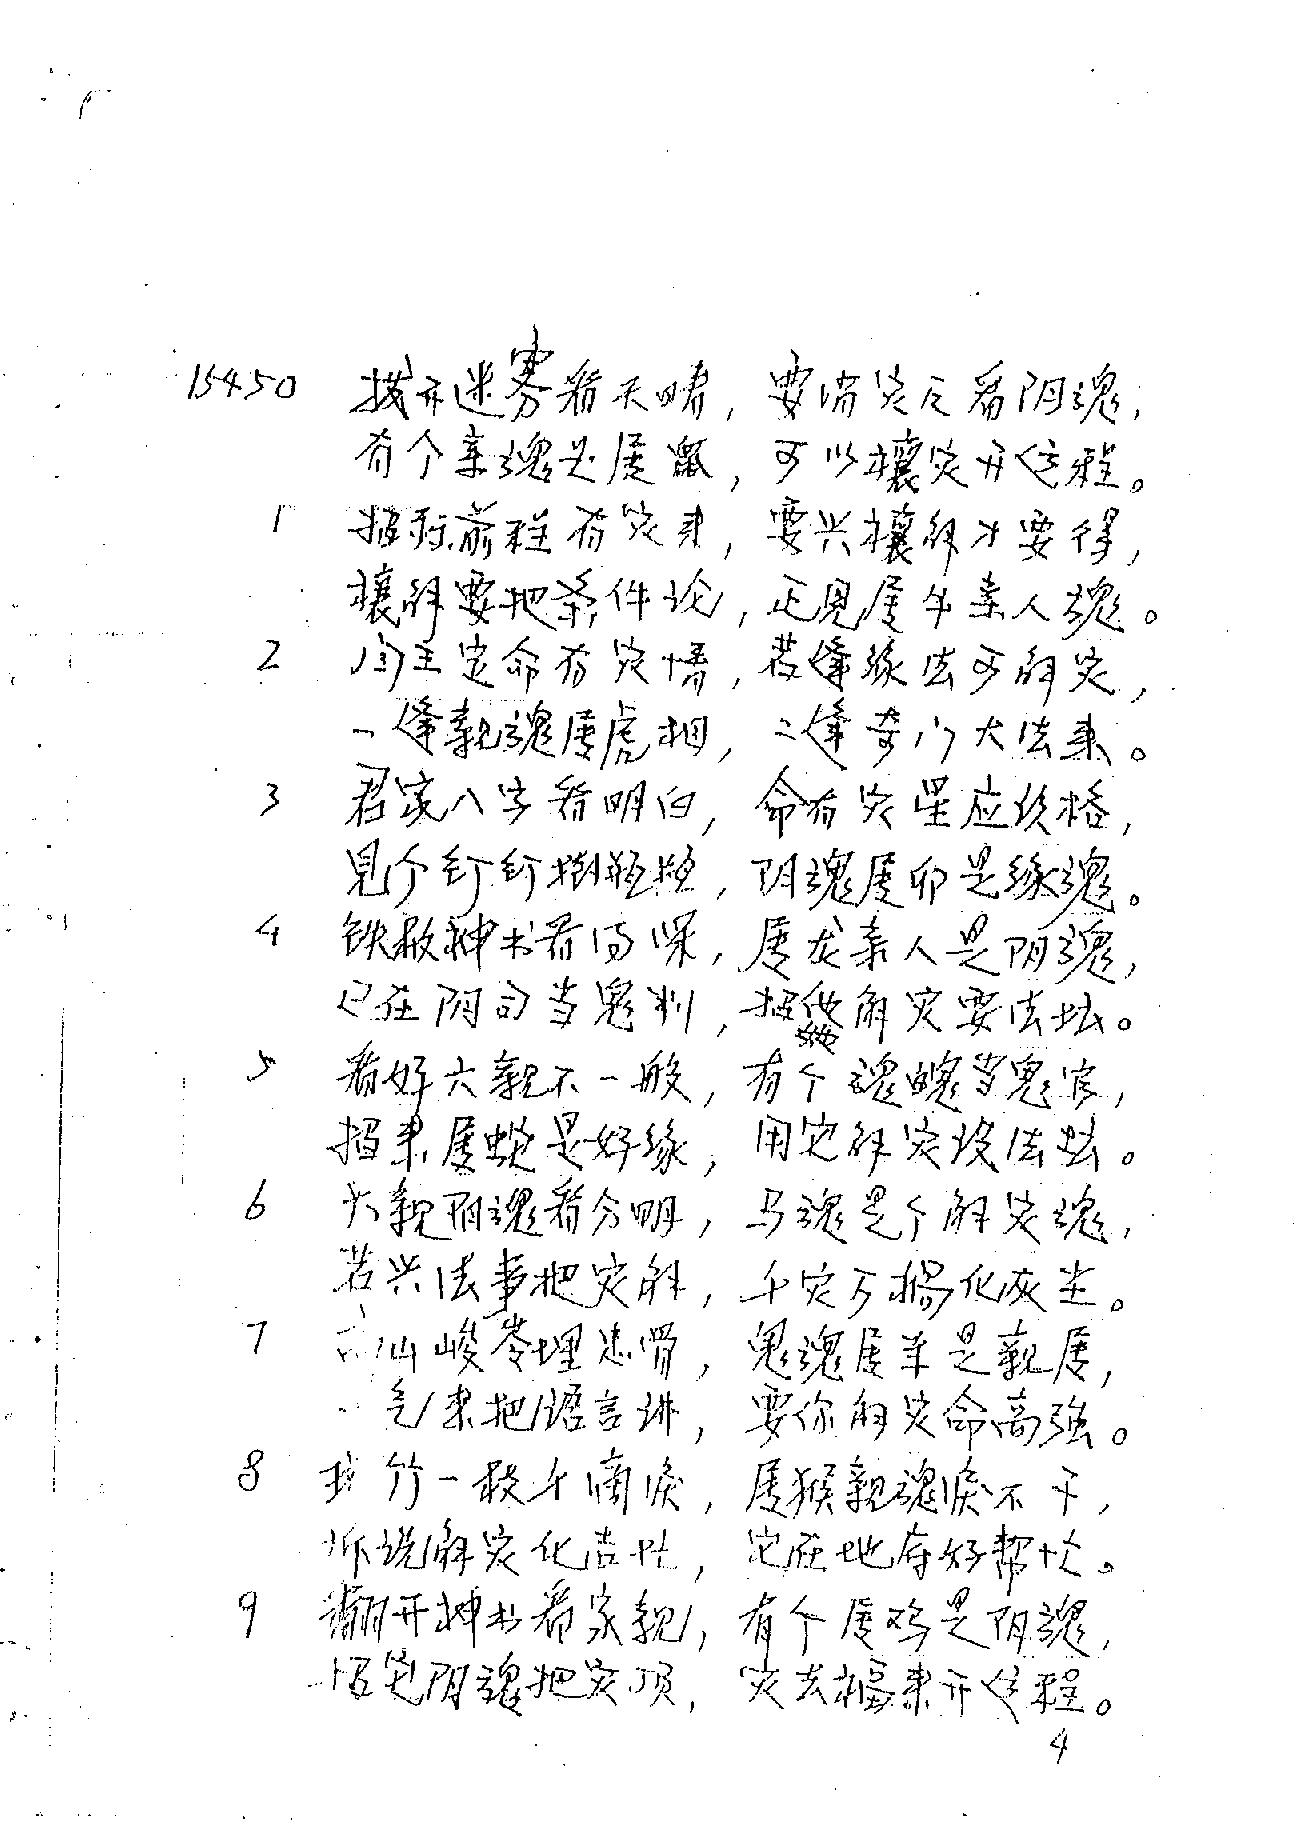 15450 拨开迷雾看天晴，要消灾厄看阴魂，
有个亲魂必属鼠，可以禳灾开运程。
1 掐君前程有灾来，要兴禳解才要得，
禳解要把条件论，正见属牛亲人魂。
2 阎王定命有灾情，若逢缘法可解灾，
一逢亲魂属虎相，二逢奇门大法来。
3 君家八字看明白，命有灾星应伏格，
见个钉钉捌瓶瓶，阴魂属卯是缘魂。
4 铁板神书看得深，属龙亲人是阴魂，
已在阴司当鬼判，招他解灾要法坛。
5 看好六亲不一般，有个魂魄当鬼官，
招来属蛇是好缘，用它解灾设法坛。
6 六亲阴魂看分明，马魂是个解灾魂，
若兴法事把灾解，千灾万祸化灰尘。
7 高山峻岺埋忠骨，鬼魂属羊是亲属，
气来把语言讲，要你解灾命高强。
8 竹一枝千滴泪，属猴亲魂泪不干，
诉说解灾化吉忙，定在地府好帮忙。
9 翻开神书看家亲，有个属鸡是阴魂，
招它阴魂把灾顶，灾去福来开运程。
4